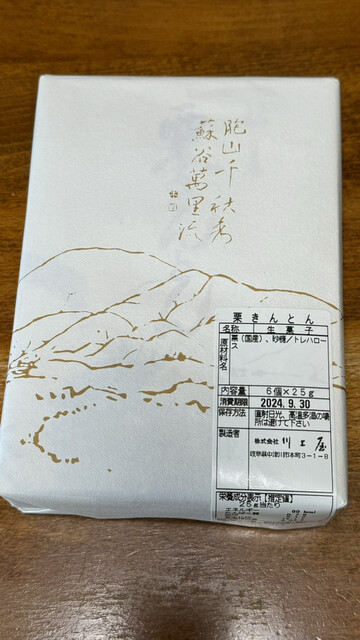 胞山千秋秀
蘇谷萬里流
栗きんとん
名称 生菓子
原材料名 栗(国産)、砂糖/トレハロース
内容量 6個×25g
消費期限 2024.9.30
保存方法 直射日光、高温多湿の場所は避けて下さい
製造者 株式会社 川上屋
岐阜県中津川市本町3-1-8
栄養成分表示【推定値】
25g当たり
エネルギー